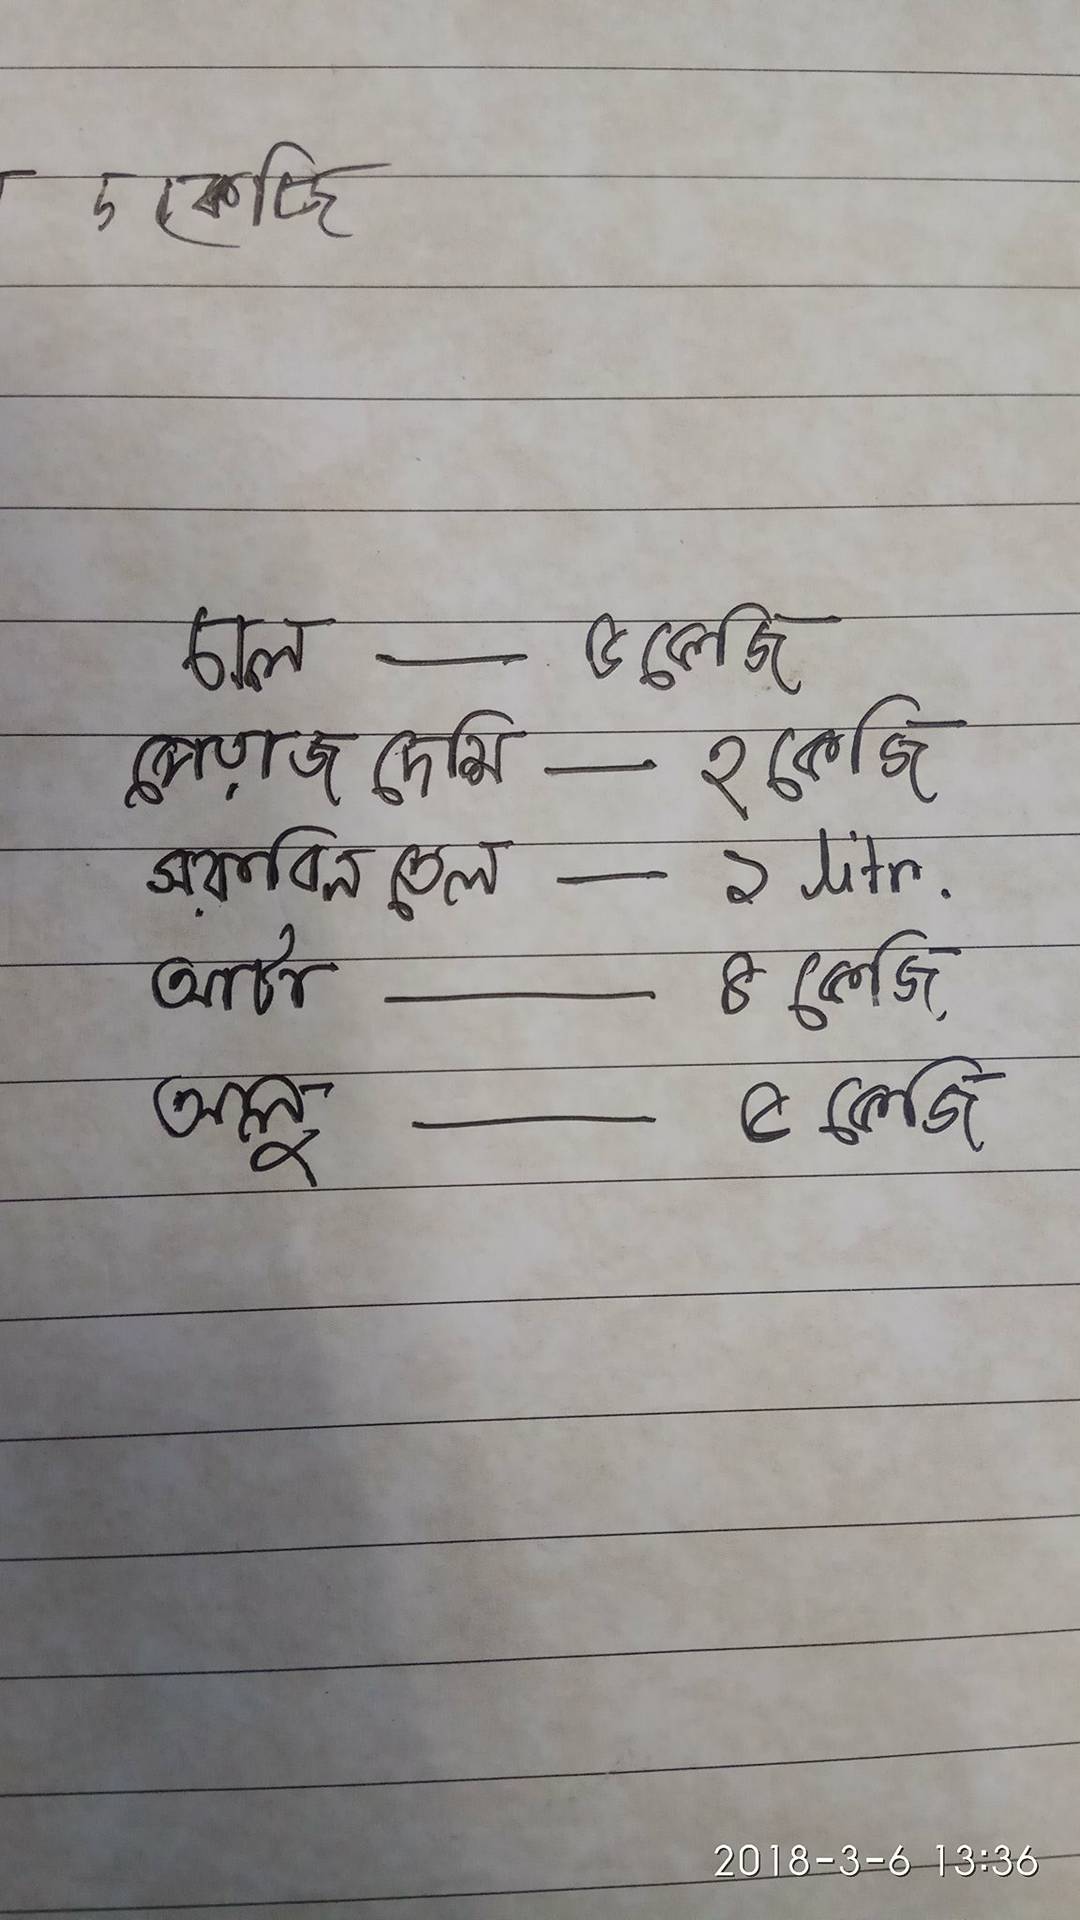 ৮ কেজি
চাল — ৫ কেজি
পেয়াজ দেশি — ২ কেজি
সয়াবিন তেল — ১ litr.
আটা — ৪ কেজি
আলু — ৫ কেজি
2018-3-6 13:36